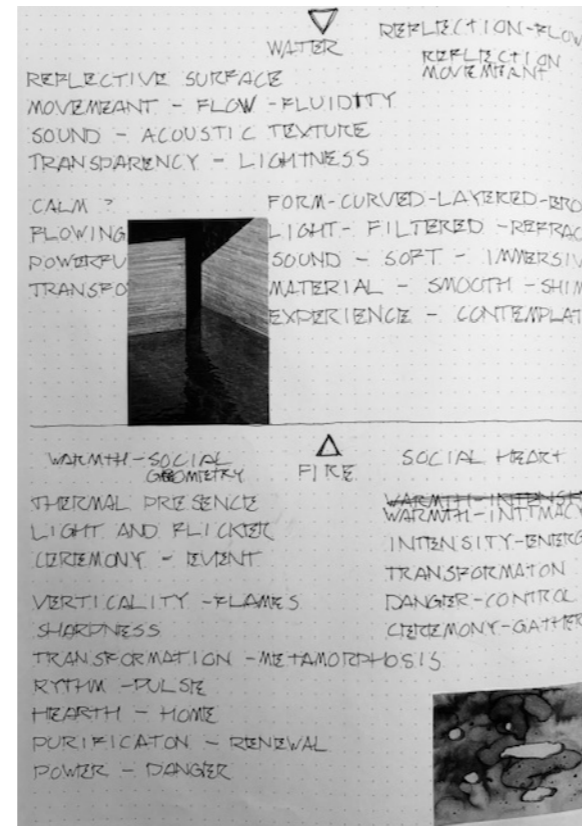 WATER
REFLECTION-FLOW
REFLECTION
MOVEMEANT
REFLECTIVE SURFACE
MOVEMEANT - FLOW - FLUIDITY
SOUND - ACOUSTIC TEXTURE
TRANSPARENCY - LIGHTNESS
CALM ?
FLOWING
POWERFU
TRANSFO
FORM-CURVED-LAYERED-BRO
LIGHT- FILTERED -REFRAC
SOUND - SOFT - IMMERSIV
MATERIAL - SMOOTH - SHIM
EXPERIENCE - CONTEMPLAT
FIRE
WARMTH-SOCIAL
GEOMETRY
THERMAL PRESENCE
LIGHT AND FLICKER
CEREMONY - EVENT
VERTICALITY -FLAMES
SHARPNESS
TRANSFORMATION -METAMORPHOSIS
RYTHM -PULSE
HEARTH - HOME
PURIFICATON - RENEWAL
POWER - DANGER
SOCIAL HEART
WARMTH-INTENSI
WARMTH-INTIMACY
INTENSITY-ENERG
TRANSFORMATON
DANGER-CONTROL
CEREMONY-GATHER